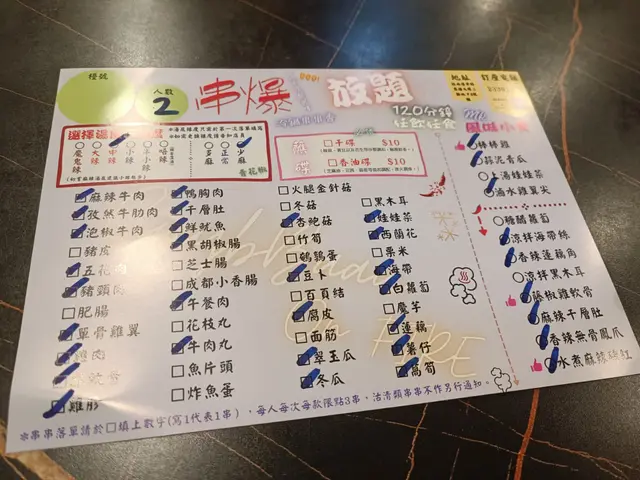 檯號
人數
2
串爆
放題
120分鐘
任飲任食
地址
訂座電話
風味小食
干碟 $10
香油碟 $10
魔鬼辣
大辣
中辣
小辣
多麻
正常
少麻
青花椒
麻辣牛肉
孜然牛肋肉
泡椒牛肉
豬皮
五花肉
豬頸肉
肥腸
單骨雞翼
雞腎
鴨胸肉
千層肚
鮮魷魚
黑胡椒腸
芝士腸
成都小香腸
午餐肉
花枝丸
牛肉丸
魚片頭
炸魚蛋
火腿金針菇
冬菇
杏鮑菇
竹筍
鵪鶉蛋
豆卜
百頁結
腐皮
面筋
翠玉瓜
冬瓜
黑木耳
娃娃菜
西蘭花
粟米
海帶
白蘿蔔
魔芋
蓮藕
薯仔
萵筍
棒棒雞
蒜泥青瓜
滷水雞翼尖
糖醋蘿蔔
涼拌海帶絲
香辣蓮藕角
涼拌黑木耳
藤椒雞軟骨
麻辣千層肚
香辣無骨鳳爪
※串串落單請於□填上數字(寫1代表1串），每人每次每款限點3串，沽清類串串不作另行通知。